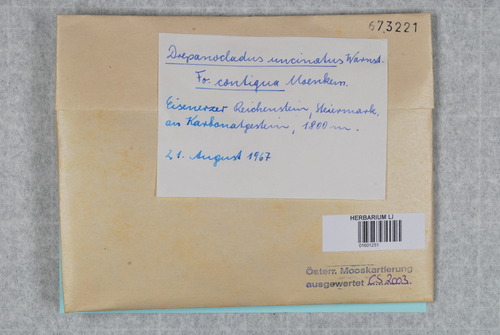 673221
Drepanocladus uncinatus Warnst.
Fo. contigua Moenkem.
Eisenerzer Reichenstein, Steiermark,
an Karbonatgestein, 1800 m.
21. August 1967
HERBARIUM LI
Österr. Mooskartierung
ausgewertet CS 2003